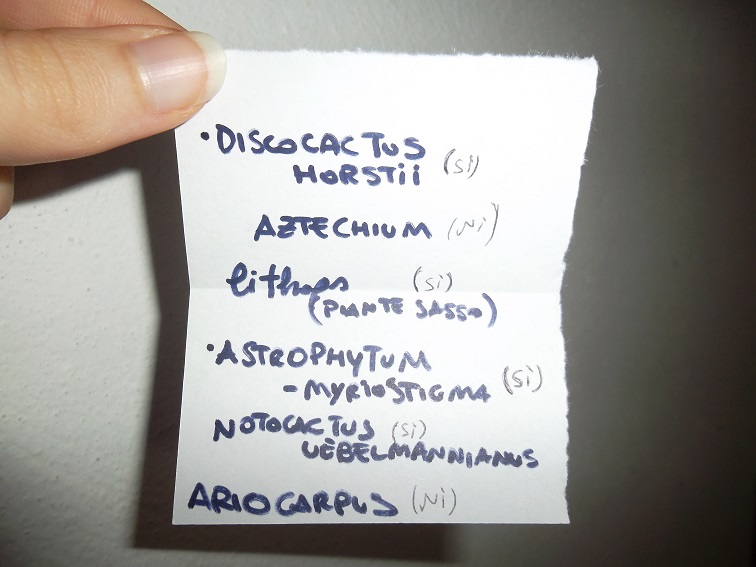 • DISCOCACTUS (Sì)
HORSTii
AZTECHIUM (Nì)
lithops (Sì)
(PIANTE SASSO)
• ASTROPHYTUM
- MYRIOSTIGMA (Sì)
NOTOCACTUS (Sì)
UEBELMANNIANUS
ARIOCARPUS (Nì)